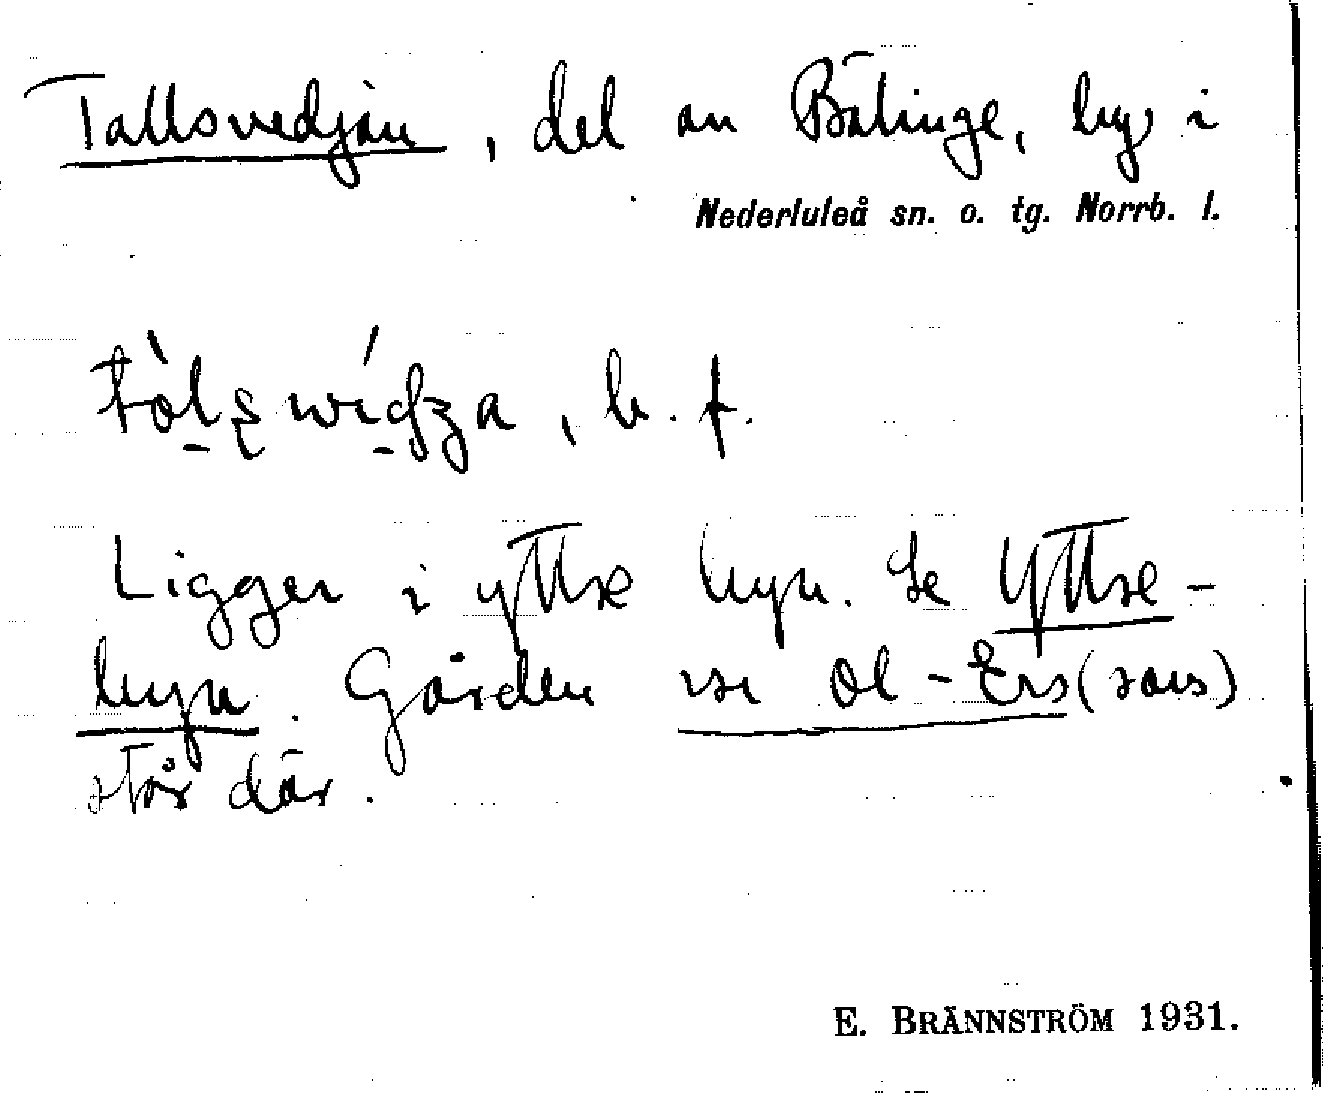 Tallsvedjan, del av Bälinge, by i
Nederluleå sn. o. tg. Norrb. l.
b. f.
Ligger i yttre byn. Se Yttre-
byn. Gården Ol-Ers(sons)
står där.
E. BRÄNNSTRÖM 1931.